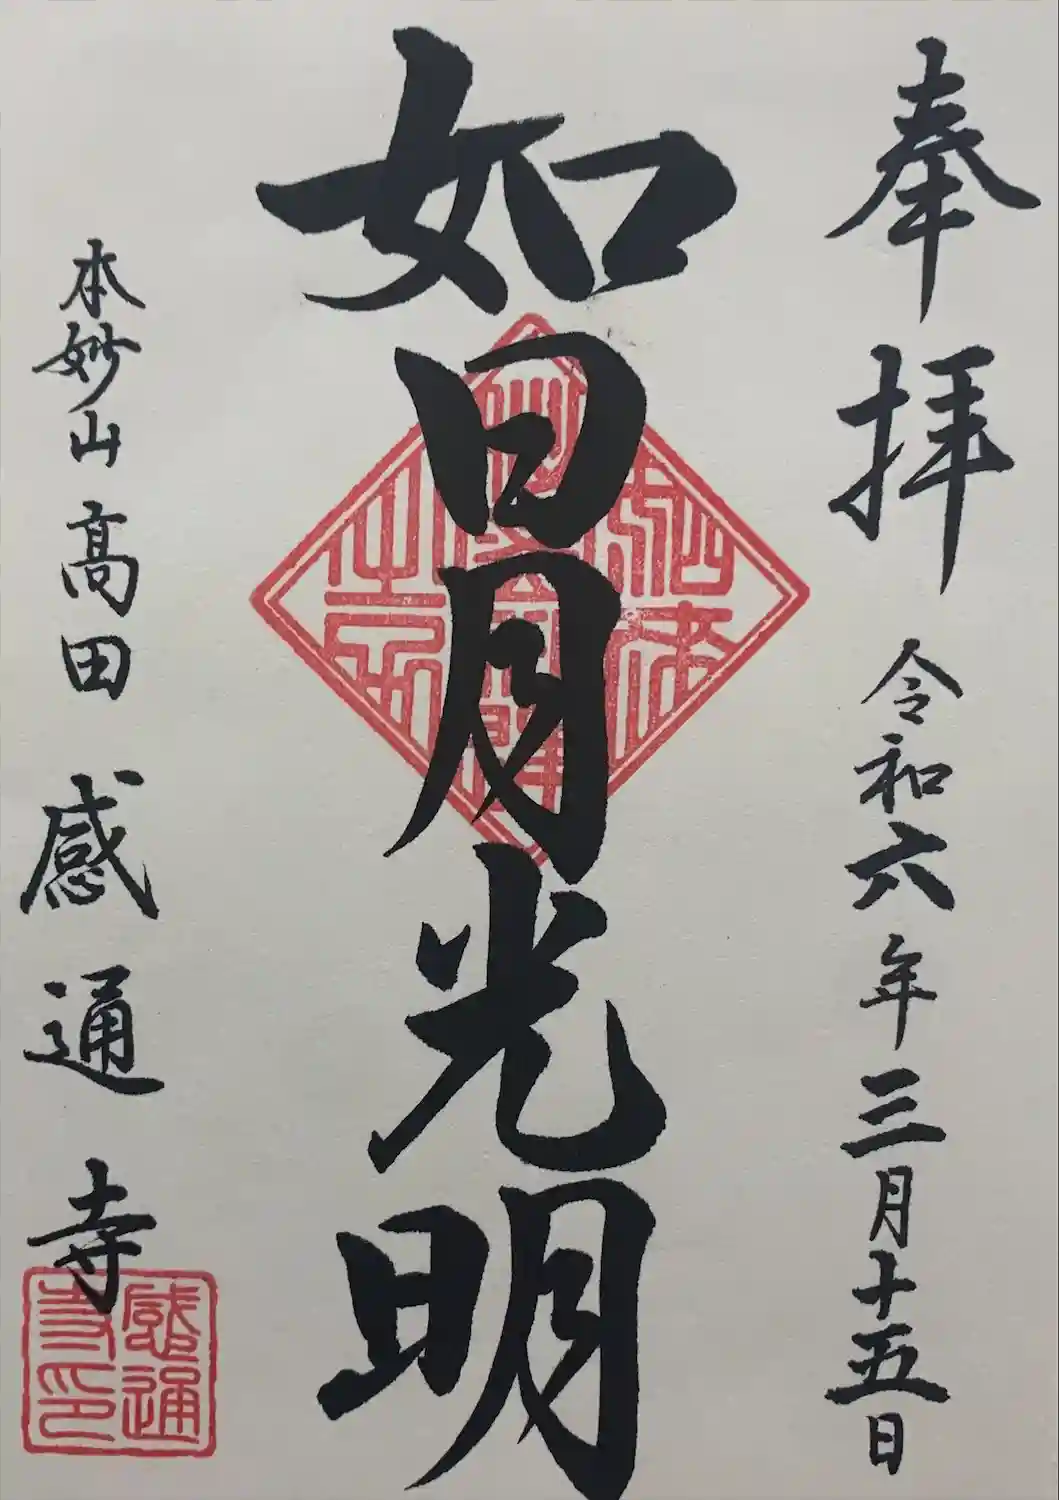 奉拝 令和六年三月十五日
如日月光明
本妙山 高田 感通寺
感通寺印